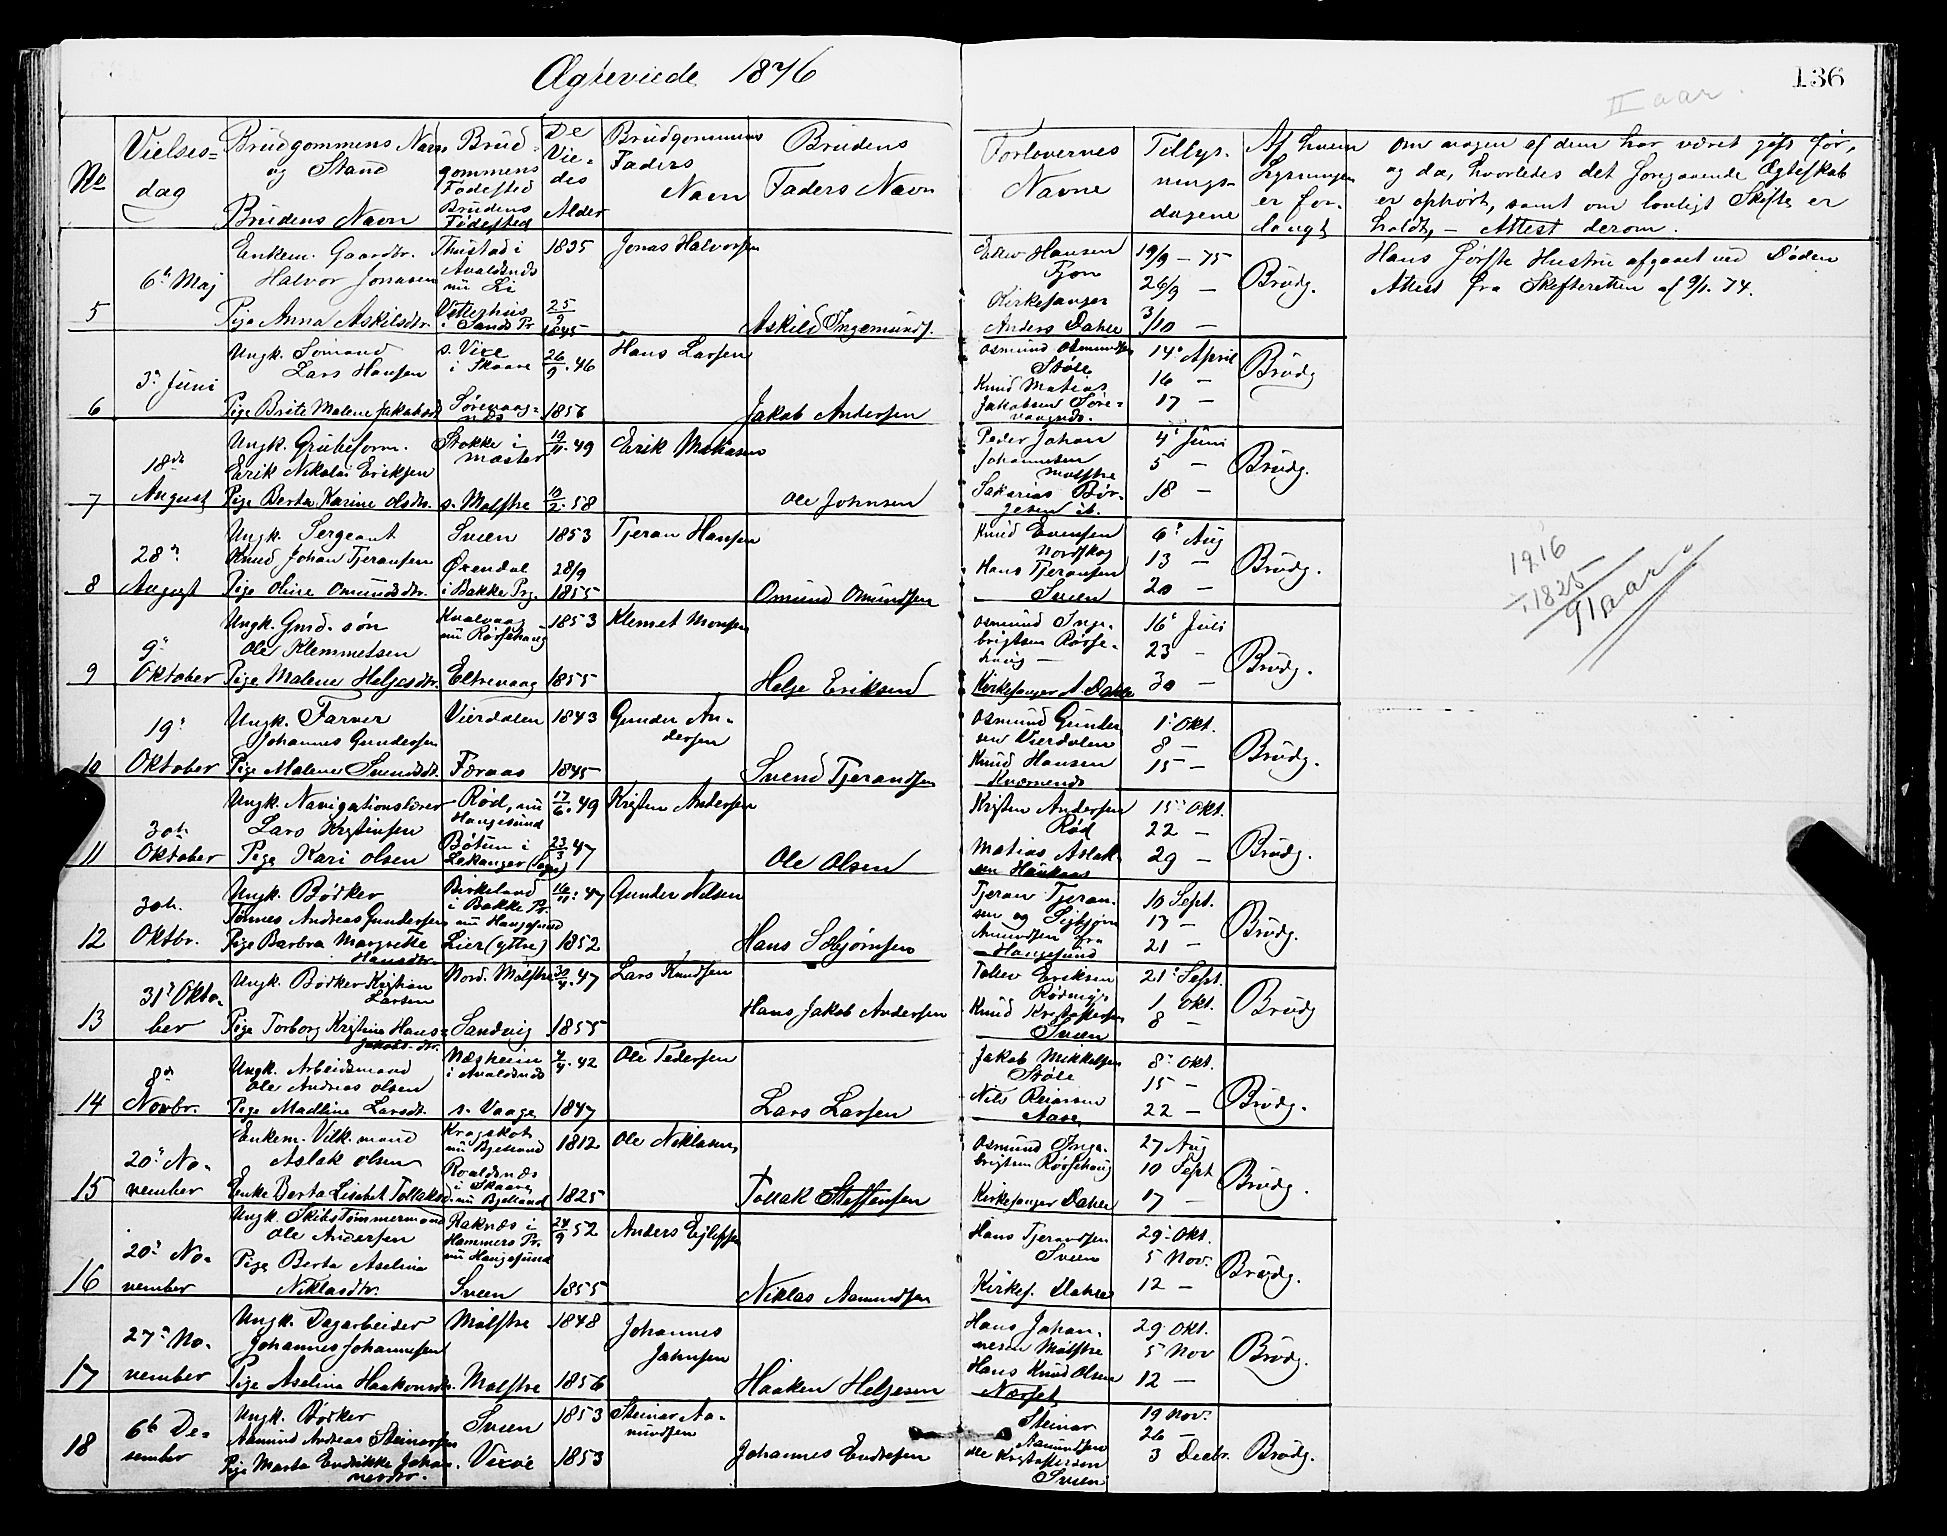 Ægteviede 1876
136
II aar.
No
Vielses-
dag
Brudgommens Navn
og Stand
Brudens Navn
Brud-
gommens
Fødested
Brudens
Fødested
De
Vie-
des
Alder
Brudgommens
Faders
Navn
Brudens
Faders Navn
Forlovernes
Navne
Tillys-
nings-
dagene
Af hvem
Lysningen
er for-
langt
Om nogen af dem har været gift før,
og da, hvorledes det foregaaende Ægteskab
er ophørt, samt om lovligt Skifte er
holdt, – Attest derom.
5
6t Maj
Enkem. Gaardbr.
Halvor Jonassen
Pige Anna Askilsdtr.
Thustad i
Avaldsnes
nu Li
Vetterhus
i Sands Pr
1835
25/9
1845
Jonas Halvorsen
Askild Ingemunds.
Hansen
Tjon
Kirkesanger
Anders Dahle
19/9 – 75
26/9 –
3/10 –
Brudg.
Hans første Hustru afgaaet ved Døden
Attest fra Skifteretten af 9/1. 74.
6
3. Juni
Ungk. Sømand
Lars Hansen
Pige Brite Malene Jakobsdt
s. Vixe
i Skaare
Sørevaag-
nes
26/9. 46
1856
Hans Larsen
Jakob Andersen
Osmund Osmundsen
Støle
Knud Matias
Jakobsen Søre-
vaagnes.
14. April
16 –
17 –
Brudg
7
18de
August
Ungk. Grubeform.
Erik Nikolai Eriksen
Pige Berta Karine Olsdtr.
Stokke i
s. Mølstre
49
10/2. 58
Erik
Ole Johnsen
Peder Johan
Johannesen
Mølstre
Sakarias Bør-
gesen
4. Juni
5 –
18 –
Brudg.
8
28.
August
Ungk. Sergeant
Knud Johan Tjeransen
Pige Oline Omundsdtr.
Sveen
Ørendal
i Bakke Prg
1853
28/9
1855
Tjeran Hansen
Omund Omundsen
Knud Evensen
Nordskog
Hans Tjeransen
Sveen
6. Aug
13 –
20 –
Brudg.
1916
÷ 1825
91 aar
9
9.
Oktober
Ungk. Gmd. søn
Ole Klemmetsen
Pige Malene Helgesdtr.
Kvalvaag
nu Rørsehaug
Eltrevaag
1853
1855
Klemet Monsen
Helge Eriksen
Osmund Inge-
brigtsen Rørse-
haug –
Kirkesanger A. Dahle
16. Juli
23 –
30 –
Brudg.
10
19.
Oktober
Ungk. Farver
Johannes Gundersen
Pige Malene Svendsdt.
Vierdalen
Føraas
1843
1845
Gunder An-
dersen
Svend Tjerandsen
Osmund Gunder
sen Vierdalen
Knud Hansen
Kværnenes
1. Okt.
8 –
15 –
Brudg.
11
30te
Oktober
Ungk. Navigationslærer
Lars Kristensen
Pige Kari Olsen
Rød, nu
Haugesund
Bøtun i
Lekanger (Sogn)
17/6. 49
23/3. 47
Kristen Andersen
Ole Olsen
Kristen Andersen
Rød
Matias Aslak-
sen Haukaas
15. Okt.
22 –
29 –
Brudg.
12
30te
Oktbr.
Ungk. Bødker
Tønnes Andreas Gundersen
Pige Barbra Margrethe
Hansdtr.
Birkeland
i Bakke Pr.
nu Haugesund
Lier (ytre)
16/11. 47
1852
Gunder Nilsen
Hans Sebjørnsen
Tjeran Tjeran-
sen og Sigbjørn
Amundsen fra
Haugesund
10 Sept.
17 –
21 –
Brudg.
13
31. Okto-
ber
Ungk. Bødker Kristian
Larsen
Pige Torborg Kristina Hans-
Jakobs-dtr.
Nord. Mølstre
Sandvig
47
1855
Lars Knudsen
Hans Jakob Andersen
Tollev Eriksen
Knud Kristoffersen
Sveen
21. Sept.
1 Okt.
8 –
Brudg
14
8de
Novbr.
Ungk. Arbeidsmand
Ole Andreas Olsen
Pige Madline Larsdt.
Næsheim
i Avaldsnes
s. Vaage
42
1847
Ole Pedersen
Lars Larsen
Jakob Mikkelsen
Støle
Nils Reiarsen
Aase
8. Okt.
15 –
22 –
Brudg.
15
20. No-
vember
Enkem. Vilk. mand
Aslak Olsen
Enke Berta Lisabet Tollaksd.
Kragskot
nu Bjelland
Roaldsnæs
i Skaare
nu Bjelland
1812
1825
Ole Niklasen,
Tollak Steffensen
Osmund Inge-
brigtsen Rørsehaug
Kirkesanger Dahle
27 Aug
10 Sept
17 –
Brudg.
16
20. No-
vember
Ungk. Skibstømmermand
Ole Andersen
Pige Berta Aselina
Niklasdtr.
Raknæs i
Hammers Pr.
nu Haugesund
Sveen
24/9 52
1855
Anders Ejlefsen
Niklas Aamundsen
Hans Tjerandsen
Sveen
Kirkes. Dahle
29. Okt.
5 Nov.
12 –
Brudg.
17
27. No-
vember
Ungk. Dagarbeider
Johannes Johannesen
Pige Aselina Haakonsdtr.
Mølstre
Mølstre
1848
1856
Johannes
Johnsen
Haaken Helgesen
Hans Johan-
nesen Mølstre
Hans Knud Olsen
Nærset
29. Okt.
5 Nov
12 –
Brudg.
18
6te De-
sember
Ungk. Bødker
Aamund Andreas Steinarsen
Pige Marta Endrikke Johan-
nesdtr.
Sveen
Vixve
1853
1853
Steinar Aa-
mundsen
Johannes Endresen
Steinar
Aamundsen
Ole Kristoffersen
Sveen
19 Nov.
26 –
3 Decbr.
Brudg.